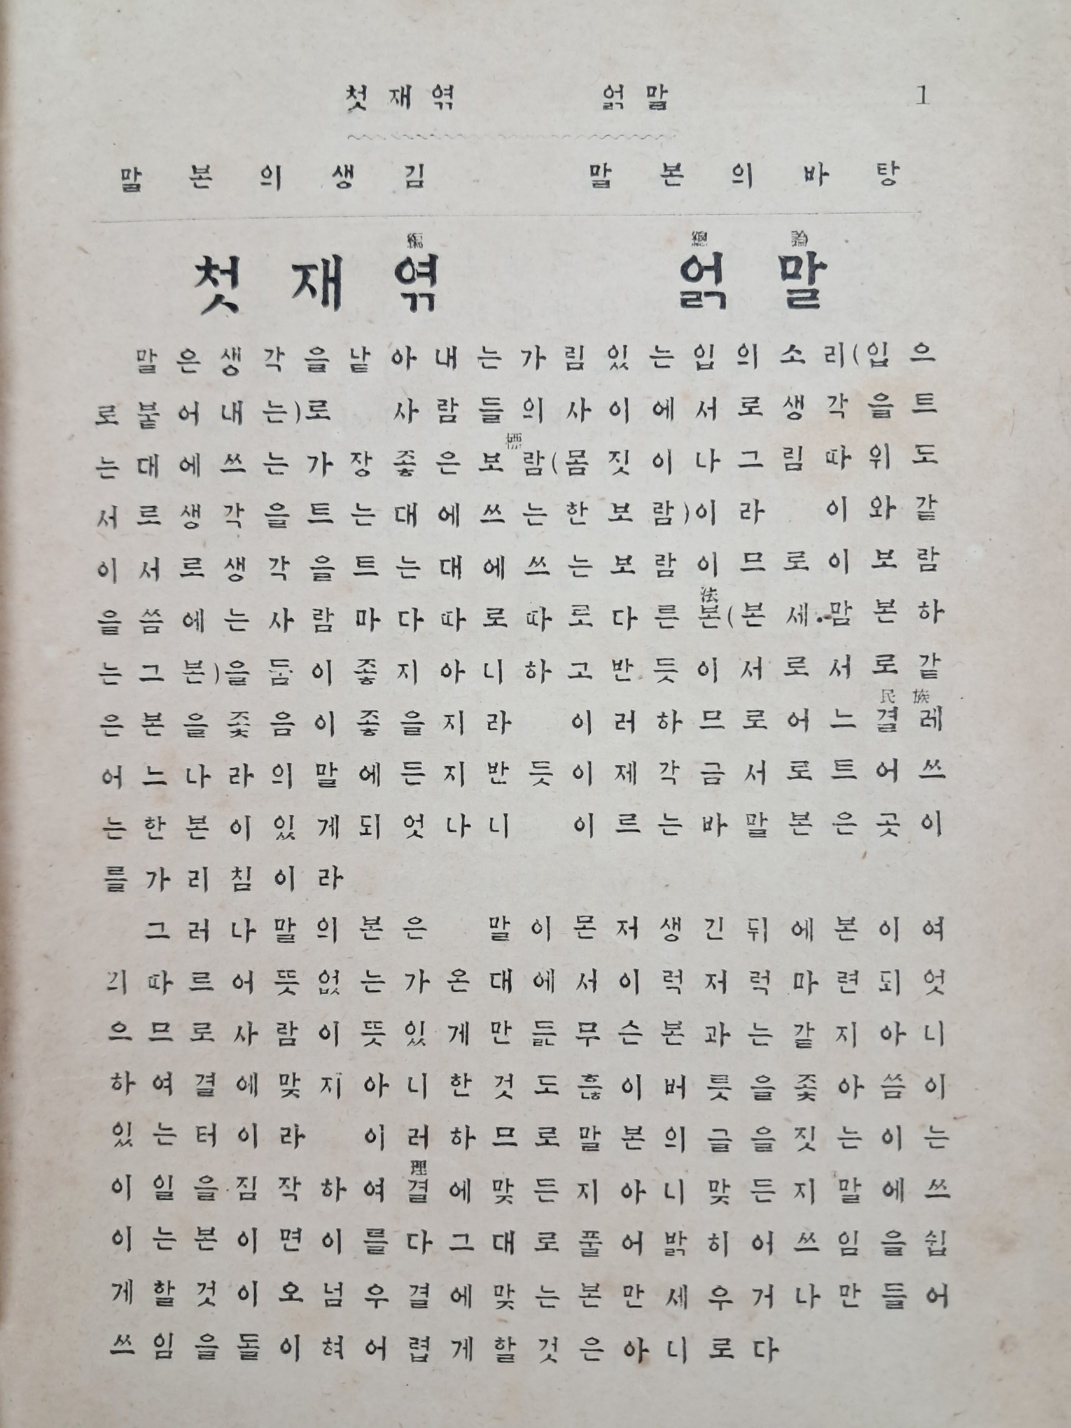 첫재엮 얽말 1
말본의생김 말본의바탕
編 總 論
첫재엮 얽말
말은생각을낱아내는가림있는입의소리(입으
로붙어내는)로 사람들의사이에서로생각을트
標
는대에쓰는가장좋은보람(몸짓이나그림따위도
서로생각을트는대에쓰는한보람)이라 이와같
이서로생각을트는대에쓰는보람이므로이보람
法
을씀에는사람마다따로따로다른본(본세·맘본하
는그본)을둠이좋지아니하고반듯이서로서로같
民族
은본을좇음이좋을지라 이러하므로어느결레
어느나라의말에든지반듯이제각금서로트어쓰
는한본이있게되엇나니 이르는바말본은곳이
를가리침이라
그러나말의본은 말이몬저생긴뒤에본이여
긔따르어뜻없는가온대에서이럭저럭마련되엇
으므로사람이뜻있게만듩무슨본과는같지아니
하여결에맞지아니한것도흖이버릇을좇아씀이
있는터이라 이러하므로말본의글을짓는이는
理
이일을짐작하여결에맞든지아니맞든지말에쓰
이는본이면이를다그대로풀어밝히어쓰임을쉽
게할것이오넘우결에맞는본만세우거나만들어
쓰임을돌이혀어렵게할것은아니로다